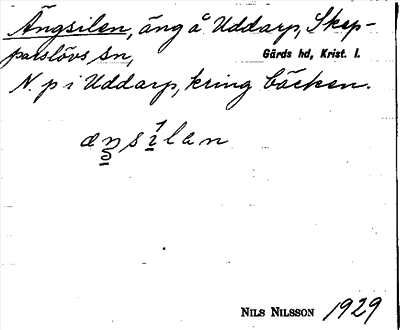 Ängsilen, äng å Uddarp, Skep-
parslövs sn, Gärds hd, Krist. l.
N. p i Uddarp, kring bäcken.
æŋsílan
NILS NILSSON 1929